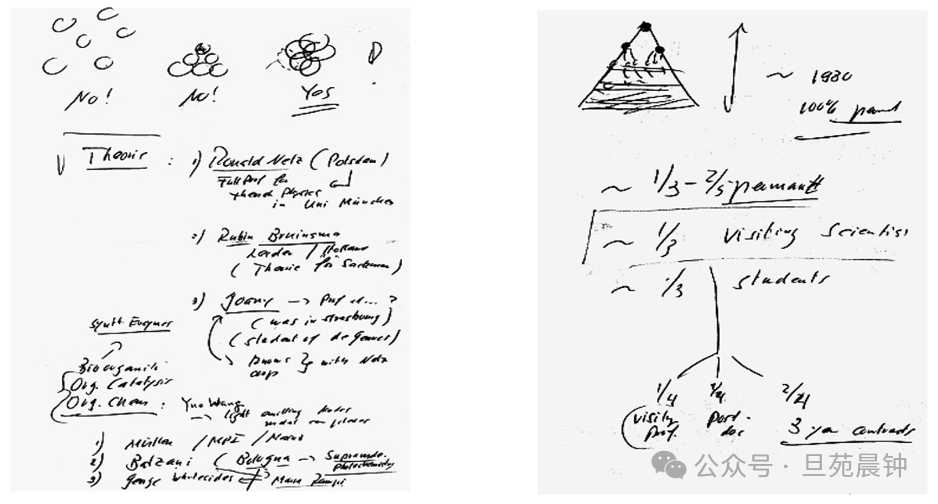 No! No! Yos
Theorie : 1) Ronald Netz (Potsdam)
Full Prof for
theoret Physics
in Uni München
2) Rubin Bruinsma
Leiden / Holland
(Theorie for Sackman)
3) Joany → Prof at... ?
(was in strasbourg)
(student of de Gennes)
knows } with Netz
Synth Enzymes
Bioorganic
Org. Catalysis
Org. Chem : Yue Wang
→ light emitting diodes
metal complexes
1) Müllen / MPI / Mainz
2) Balzani (Bologna → Supramole.
Photochemistry
3) George Whitesides
~ 1980
100% perma
~ 1/3 - 2/5 permanent
~ 1/3 Visiting Scientists
~ 1/3 students
1/4 1/4 2/4
Visity Post- 3 year contracts
Prof. doc
公众号 · 旦苑晨钟